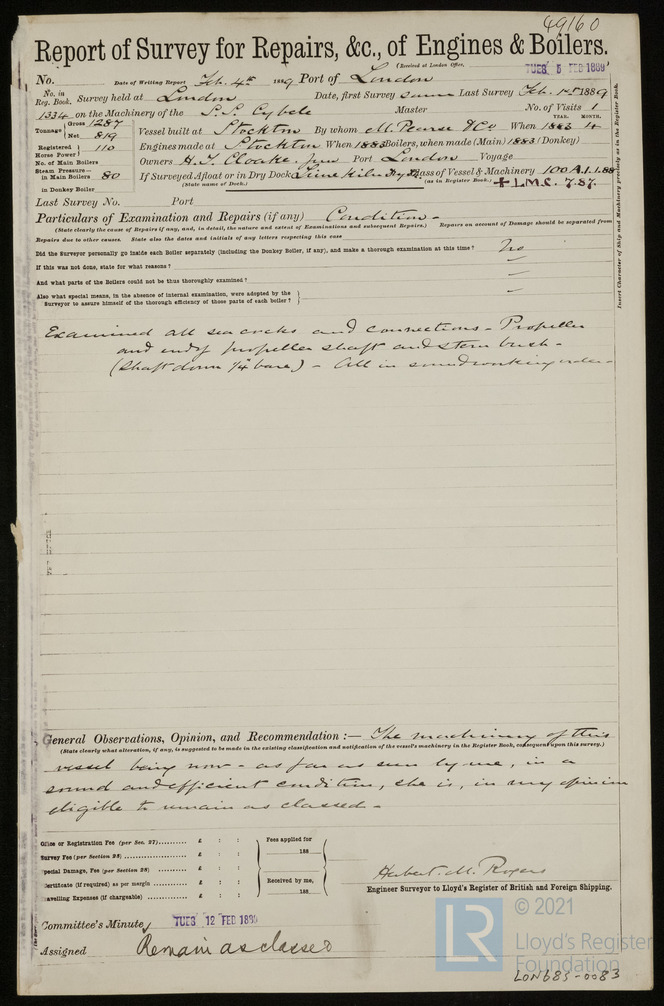 49160
Report of Survey for Repairs, &c., of Engines & Boilers.
(Received at London Office,
TUES 5 FEB 1889
No. Date of Writing Report Feb. 4th 1889 Port of London
No. in Reg. Book. Survey held at London Date, first Survey same Last Survey Feb. 1st 1889
1334 on the Machinery of the S.S. Cybele Master No. of Visits 1
Tonnage Gross 1287 Net 819 Vessel built at Stockton By whom M. Pearse & Co When 1883 YEAR. MONTH. 4
Registered Horse Power 110 Engines made at Stockton When 1883 Boilers, when made (Main) 1883 (Donkey)
No. of Main Boilers Owners H. T. Cloake. jun Port London Voyage
Steam Pressure— in Main Boilers 80 If Surveyed Afloat or in Dry Dock Limekiln Dry Dk. Class of Vessel & Machinery 100 A.1. 1.88
(State name of Dock.) (as in Register Book.) + L.M.C. 7.87.
in Donkey Boiler
Last Survey No. Port
Particulars of Examination and Repairs (if any) Condition -
(State clearly the cause of Repairs if any, and, in detail, the nature and extent of Examinations and subsequent Repairs.) Repairs on account of Damage should be separated from
Repairs due to other causes. State also the dates and initials of any letters respecting this case
Did the Surveyor personally go inside each Boiler separately (including the Donkey Boiler, if any), and make a thorough examination at this time? No
If this was not done, state for what reasons?
And what parts of the Boilers could not be thus thoroughly examined?
Also what special means, in the absence of internal examination, were adopted by the
Surveyor to assure himself of the thorough efficiency of those parts of each boiler?
Insert Character of Ship and Machinery precisely as in the Register Book.
Examined all sea cocks and connections - Propeller
and end of propeller shaft and stern bush -
(Shaft down 1/4" bare) - All in sound working order -
General Observations, Opinion, and Recommendation :— The machinery of this
(State clearly what alteration, if any, is suggested to be made in the existing classification and notification of the vessel's machinery in the Register Book, consequent upon this survey.)
vessel being now - as far as seen by me, in a
sound and efficient condition, she is, in my opinion
eligible to remain as classed -
Office or Registration Fee (per Sec. 27) £ : :
Survey Fee (per Section 28) £ : :
Special Damage, Fee (per Section 28) £ : :
Certificate (if required) as per margin £ : :
Travelling Expenses (if chargeable) £ : :
Fees applied for
188
Received by me,
188
Herbert M. Rogers
Engineer Surveyor to Lloyd's Register of British and Foreign Shipping.
Committee's Minute TUES 12 FEB 1889
Assigned Remain as classed
LR
© 2021
Lloyd's Register
Foundation
LON683-0083